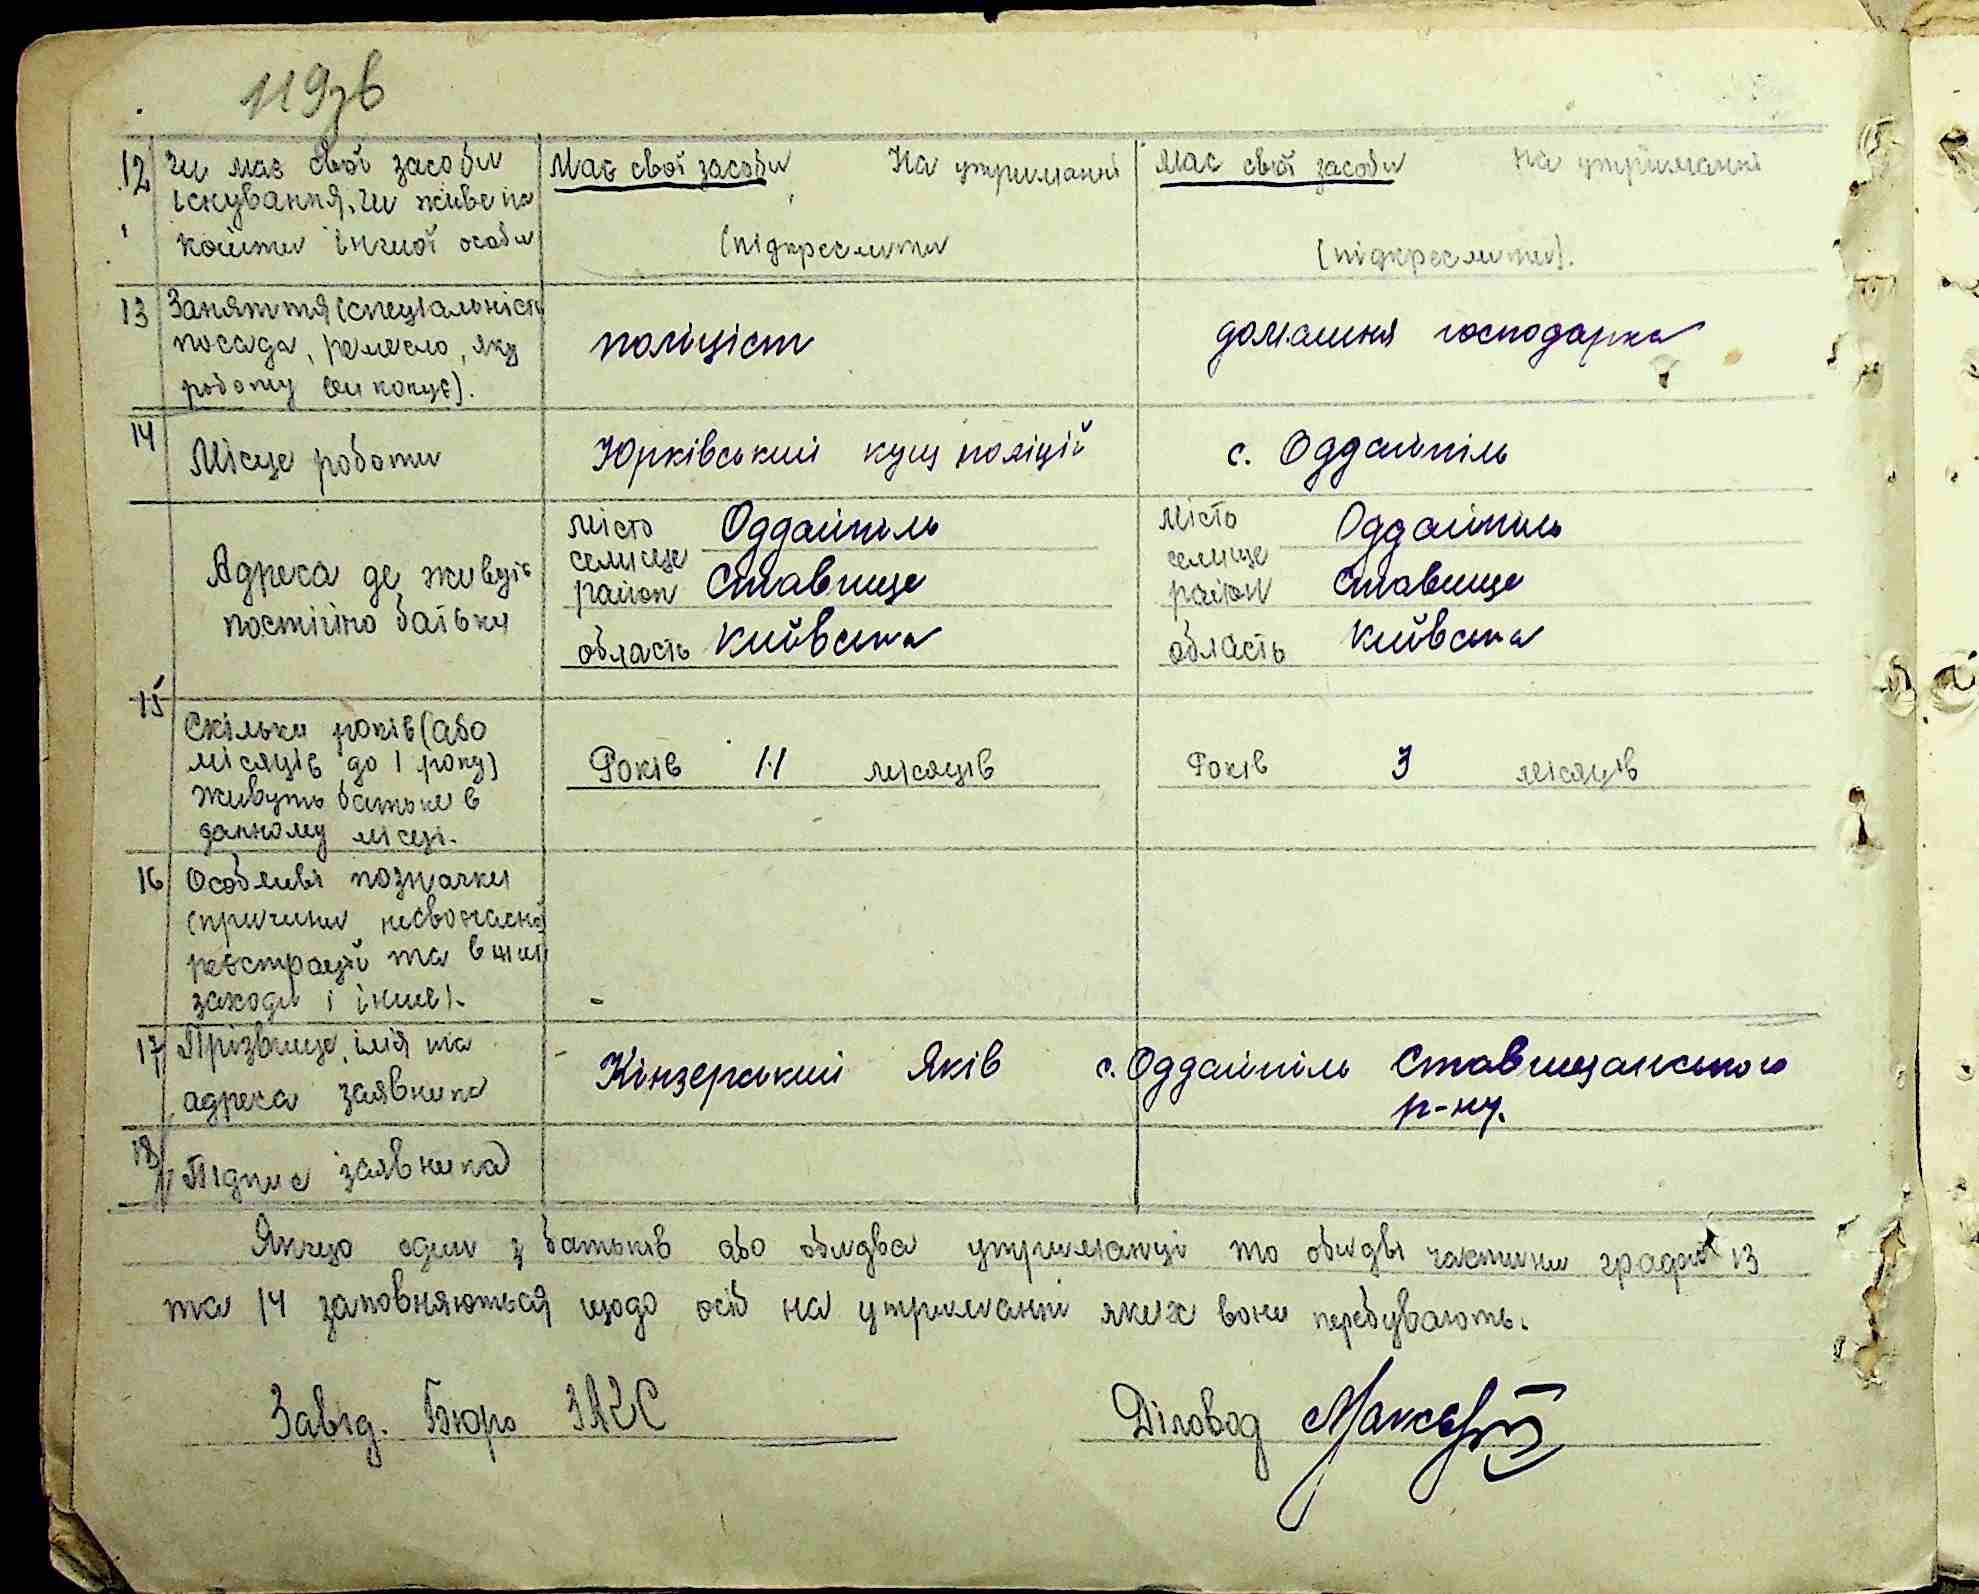 119зв
12 Чи має свої засоби Має свої засоби На утриманні Має свої засоби На утриманні
існування, чи живе на
кошти іншої особи (підкреслити (підкреслити).
13 Заняття (спеціальність
посада, ремесло, яку поліціст домашня господарка
роботу виконує).
14 Місце роботи Юрківський кущ поліції с. Оддайпіль
місто Оддайпіль місто Оддайпіль
селище селище
Адреса де живуть район Ставище район Ставище
постійно батьки область Київська область Київська
15
Скільки років (або
місяців до 1 року) Років 11 місяців Років 3 місяців
живуть батьки в
данному місці.
16 Особливі позначки
(причини несвоєчасної
реєстрації та вжиті
заходи і інше).
17 Прізвище, імія та Кінзерський Яків с. Оддайпіль Ставищанського
адреса заявника р-ну.
18 Підпис заявника
Якщо один з батьків або обидва утриманці то обидві частини графи 13
та 14 заповняються щодо осіб на утриманні яких вони перебувають.
Завід. Бюро ЗАГС Діловод